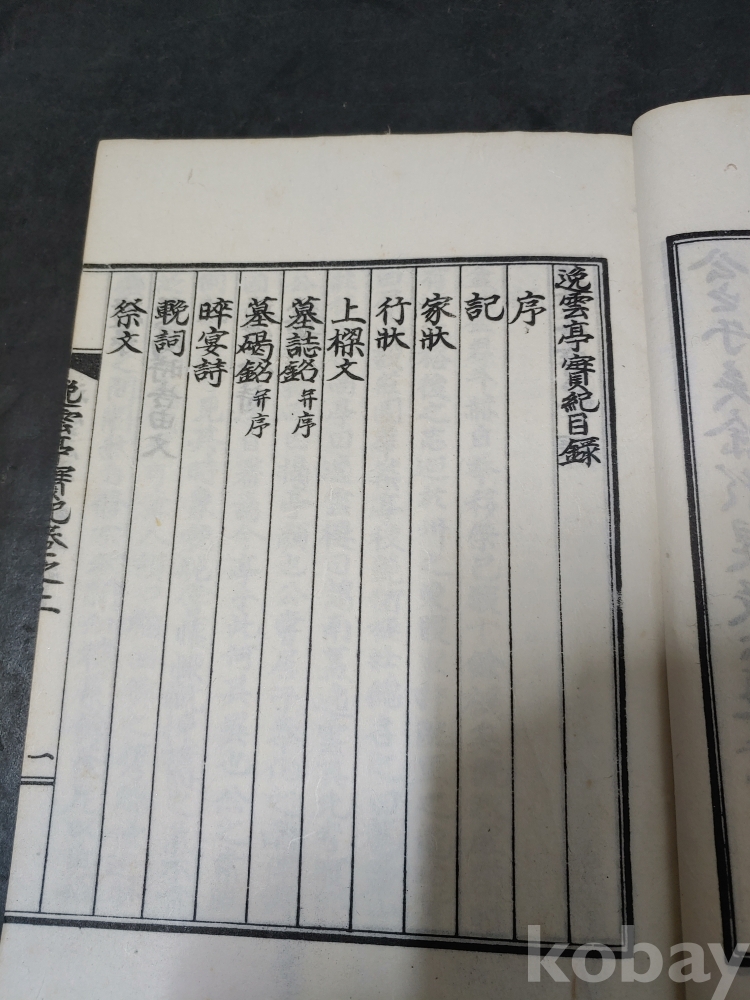 逸雲亭實紀目錄
序
記
家狀
行狀
上樑文
墓誌銘 并序
墓碣銘 并序
晬宴詩
輓詞
祭文
逸雲亭實紀卷之二
一
kobay